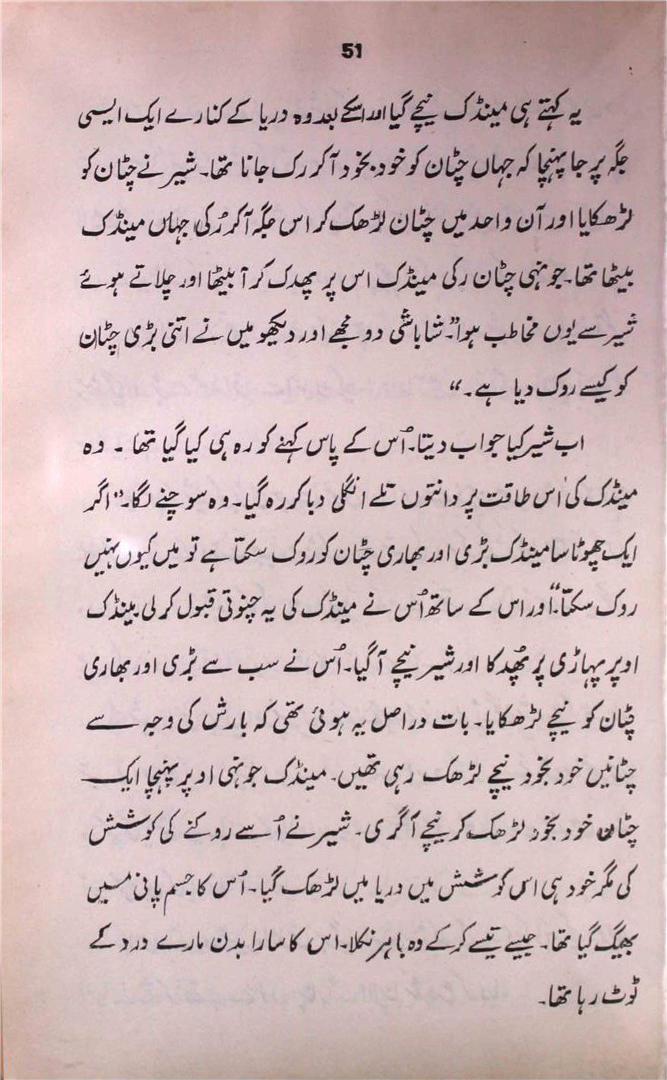 51
یہ کہتے ہی مینڈک نیچے گیا اور اسکے بعد وہ دریا کے کنارے ایک ایسی
جگہ پر جا پہنچا کہ جہاں چٹان کو خود بخود آکر رک جانا تھا۔ شیر نے چٹان کو
لڑھکایا اور آن واحد میں چٹان لڑھک کر اس جگہ آکر رُکی جہاں مینڈک
بیٹھا تھا۔ جونہی چٹان رکی مینڈک اس پر پھدک کر آ بیٹھا اور چلاتے ہوئے
شیر سے یوں مخاطب ہوا۔ ”شاباشی دو مجھے اور دیکھو میں نے اتنی بڑی چٹان
کو کیسے روک دیا ہے۔“
اب شیر کیا جواب دیتا۔ اُس کے پاس کہنے کو رہ ہی کیا گیا تھا ۔ وہ
مینڈک کی اس طاقت پر دانتوں تلے انگلی دبا کر رہ گیا۔ وہ سوچنے لگا۔ ”اگر
ایک چھوٹا سا مینڈک بڑی اور بھاری چٹان کو روک سکتا ہے تو میں کیوں نہیں
روک سکتا۔“ اور اس کے ساتھ اُس نے مینڈک کی یہ چنوتی قبول کر لی مینڈک
اوپر پہاڑی پر پھُدکا اور شیر نیچے آ گیا۔ اُس نے سب سے بڑی اور بھاری
چٹان کو نیچے لڑھکایا۔ بات دراصل یہ ہوئی تھی کہ بارش کی وجہ سے
چٹانیں خود بخود نیچے لڑھک رہی تھیں۔ مینڈک جونہی اوپر پہنچا ایک
چٹان خود بخود لڑھک کر نیچے آ گری۔ شیر نے اُسے روکنے کی کوشش
کی مگر خود ہی اس کوشش میں دریا میں لڑھک گیا۔ اُس کا جسم پانی میں
بھیگ گیا تھا۔ جیسے تیسے کر کے وہ باہر نکلا۔ اس کا سارا بدن مارے درد کے
ٹوٹ رہا تھا۔